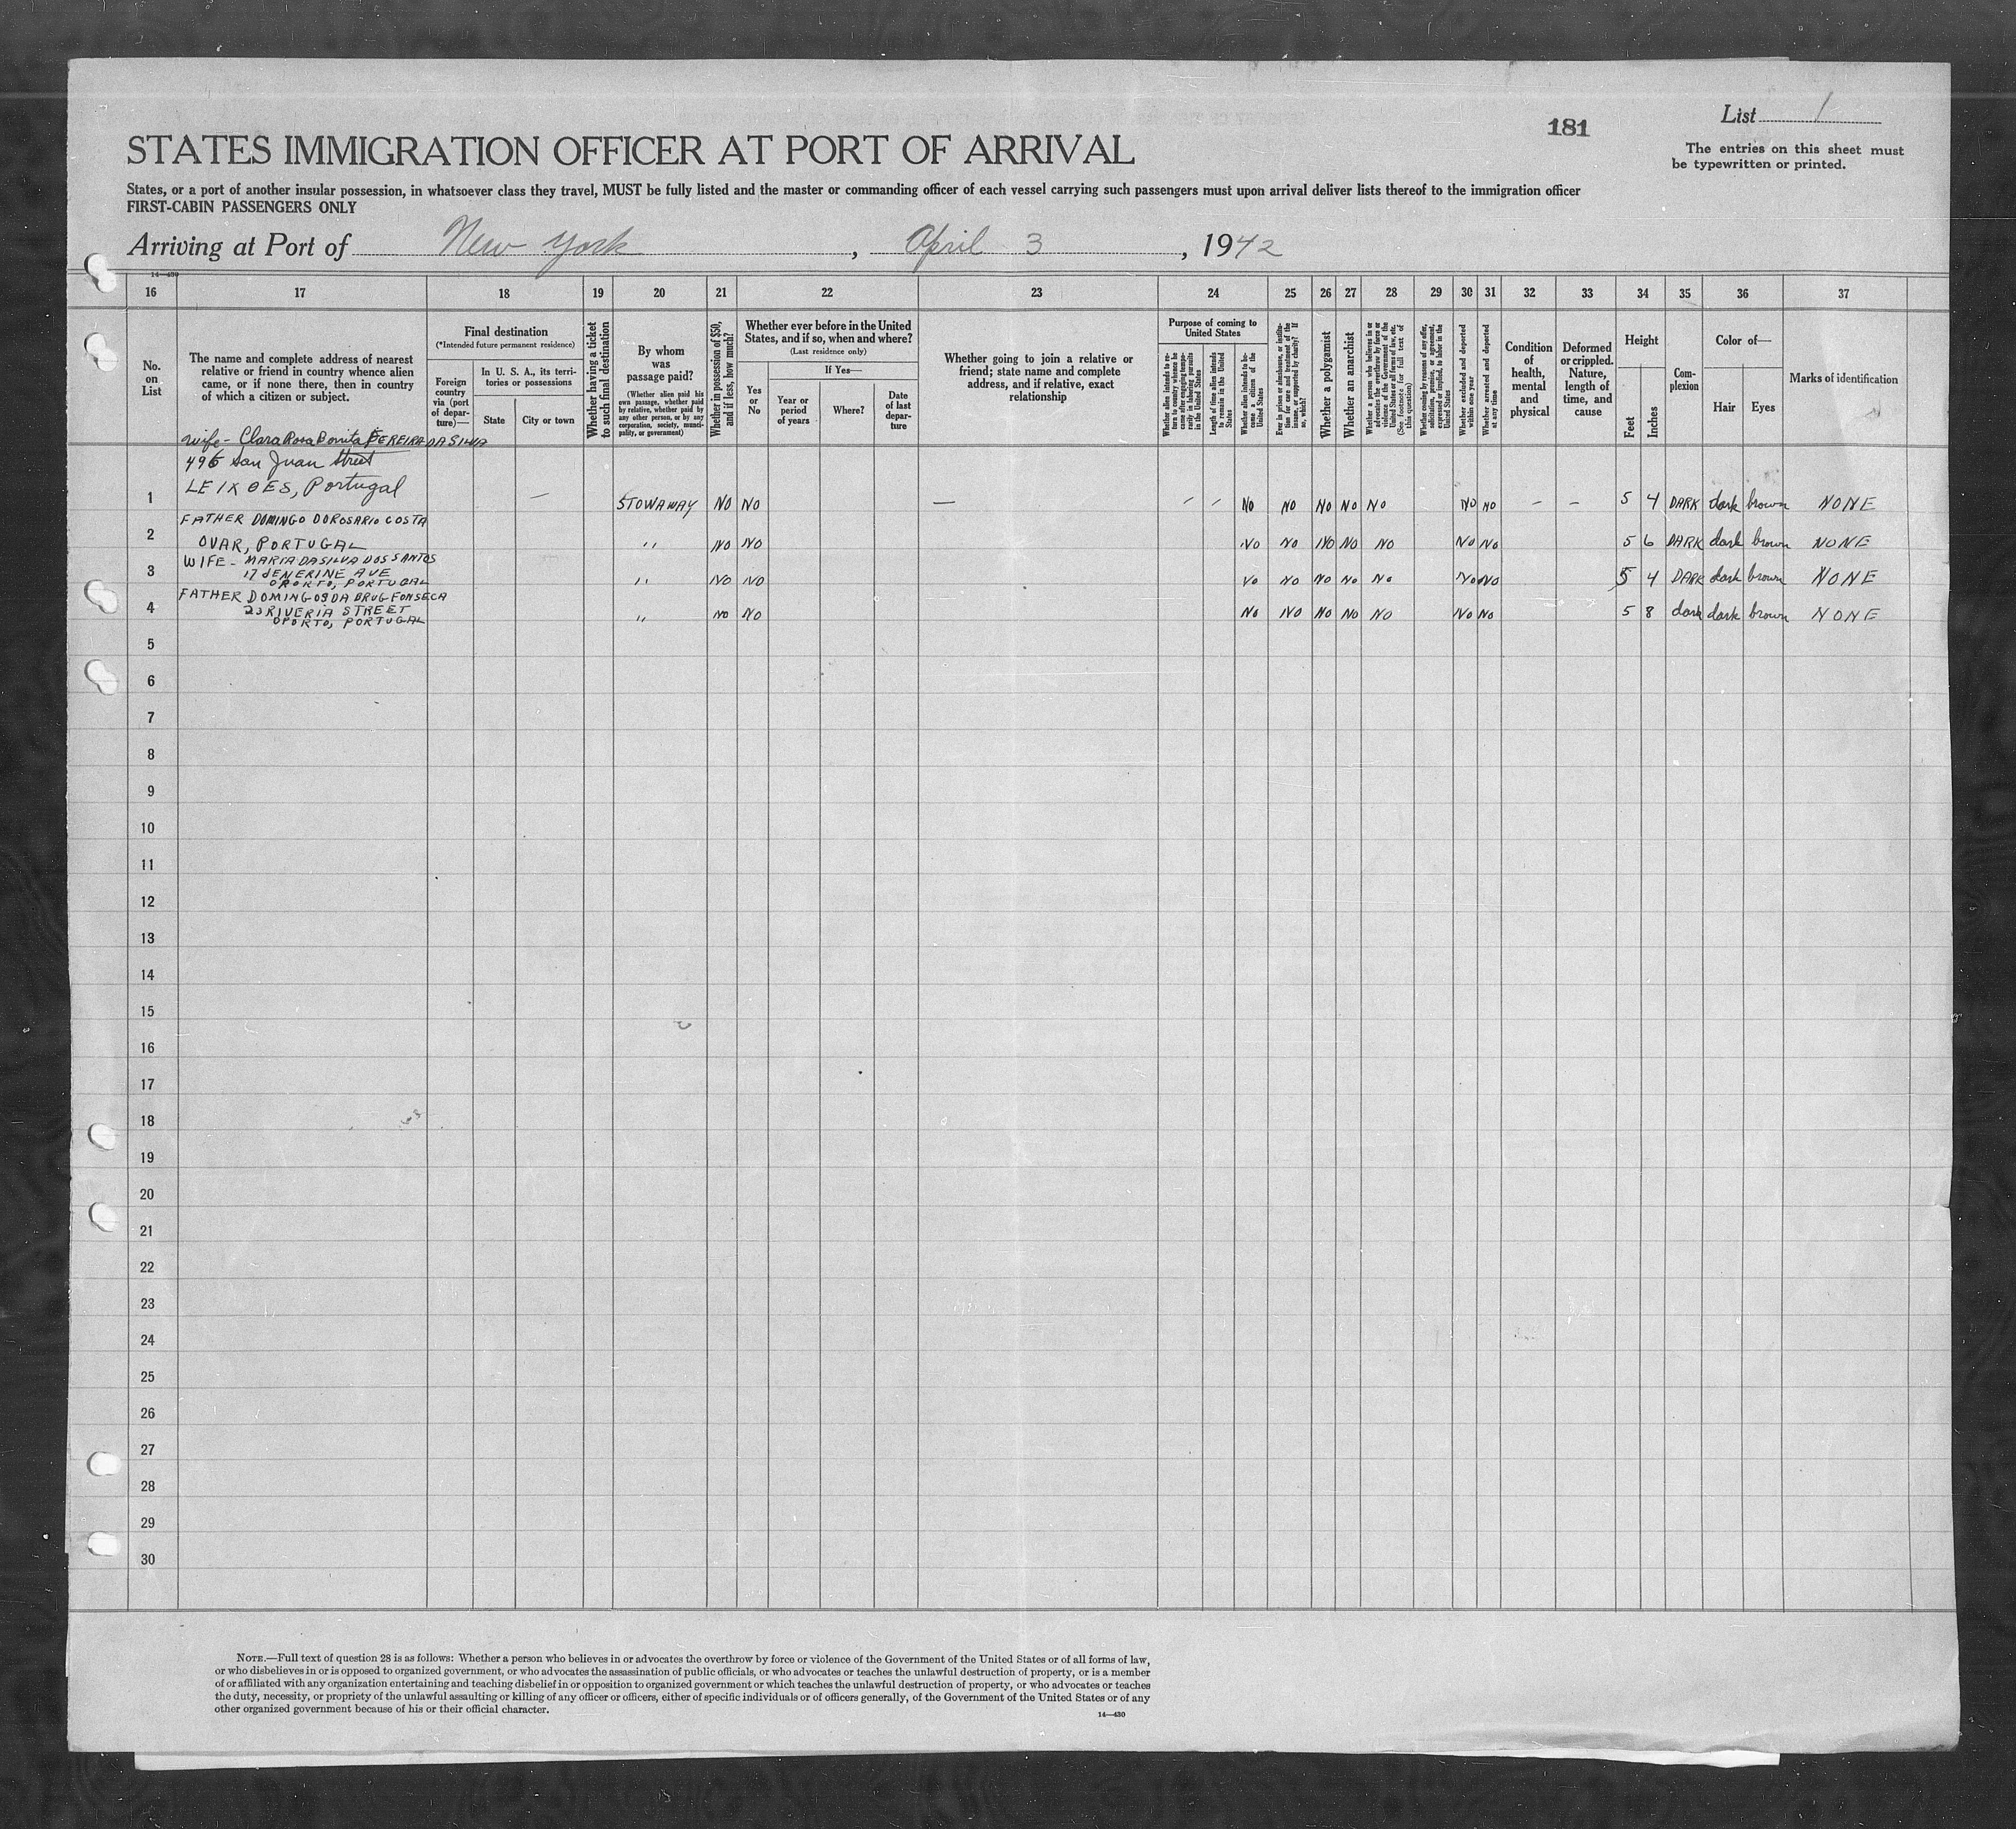 List 1
181
The entries on this sheet must
be typewritten or printed.
STATES IMMIGRATION OFFICER AT PORT OF ARRIVAL
States, or a port of another insular possession, in whatsoever class they travel, MUST be fully listed and the master or commanding officer of each vessel carrying such passengers must upon arrival deliver lists thereof to the immigration officer
FIRST-CABIN PASSENGERS ONLY
Arriving at Port of New York, April 3, 1942
14—430
16 17 18 19 20 21 22 23 24 25 26 27 28 29 30 31 32 33 34 35 36 37
No.
on
List
The name and complete address of nearest
relative or friend in country whence alien
came, or if none there, then in country
of which a citizen or subject.
Final destination
(*Intended future permanent residence)
Foreign
country
via (port
of depar-
ture)—
In U. S. A., its terri-
tories or possessions
State
City or town
Whether having a ticket
to such final destination
By whom
was
passage paid?
(Whether alien paid his
own passage, whether paid
by relative, whether paid by
any other person, or by any
corporation, society, munici-
pality, or government)
Whether in possession of $50,
and if less, how much?
Whether ever before in the United
States, and if so, when and where?
(Last residence only)
Yes
or
No
If Yes—
Year or
period
of years
Where?
Date
of last
depar-
ture
Whether going to join a relative or
friend; state name and complete
address, and if relative, exact
relationship
Purpose of coming to
United States
Whether alien intends to re-
turn to country whence he
came after engaging tempo-
rarily in laboring pursuits
in the United States
Length of time alien intends
to remain in the United
States
Whether alien intends to be-
come a citizen of the
United States
Ever in prison or almshouse, or institu-
tion for care and treatment of the
insane, or supported by charity? If
so, which?
Whether a polygamist
Whether an anarchist
Whether a person who believes in or
advocates the overthrow by force or
violence of the Government of the
United States or all forms of law, etc.
(See footnote for full text of
this question)
Whether coming by reasons of any offer,
solicitation, promise, or agreement,
expressed or implied, to labor in the
United States
Whether excluded and deported
within one year
Whether arrested and deported
at any time
Condition
of
health,
mental
and
physical
Deformed
or crippled.
Nature,
length of
time, and
cause
Height
Feet
Inches
Com-
plexion
Color of—
Hair
Eyes
Marks of identification
Wife - Clara Rosa Bonita PEREIRA DA SILVA
495 San Juan Street
LEIXOES, Portugal
1 — STOWAWAY NO NO — – – NO NO NO NO NO NO NO – – 5 4 DARK dark brown NONE
FATHER DOMINGO DOROSARIO COSTA
2 OVAR, PORTUGAL " NO NO NO NO NO NO NO NO NO 5 6 DARK dark brown NONE
WIFE - MARIA DASILVA DOS SANTOS
17 JENERINE AVE
3 OPORTO, PORTUGAL " NO NO NO NO NO NO NO NO NO 5 4 DARK dark brown NONE
FATHER DOMINGOS DA DRUG FONSECA
23 RIVERIA STREET
4 OPORTO, PORTUGAL " NO NO NO NO NO NO NO NO NO 5 8 dark dark brown NONE
5
6
7
8
9
10
11
12
13
14
15
16
17
18
19
20
21
22
23
24
25
26
27
28
29
30
NOTE.—Full text of question 28 is as follows: Whether a person who believes in or advocates the overthrow by force or violence of the Government of the United States or of all forms of law,
or who disbelieves in or is opposed to organized government, or who advocates the assassination of public officials, or who advocates or teaches the unlawful destruction of property, or is a member
of or affiliated with any organization entertaining and teaching disbelief in or opposition to organized government or which teaches the unlawful destruction of property, or who advocates or teaches
the duty, necessity, or propriety of the unlawful assaulting or killing of any officer or officers, either of specific individuals or of officers generally, of the Government of the United States or of any
other organized government because of his or their official character.
14—430